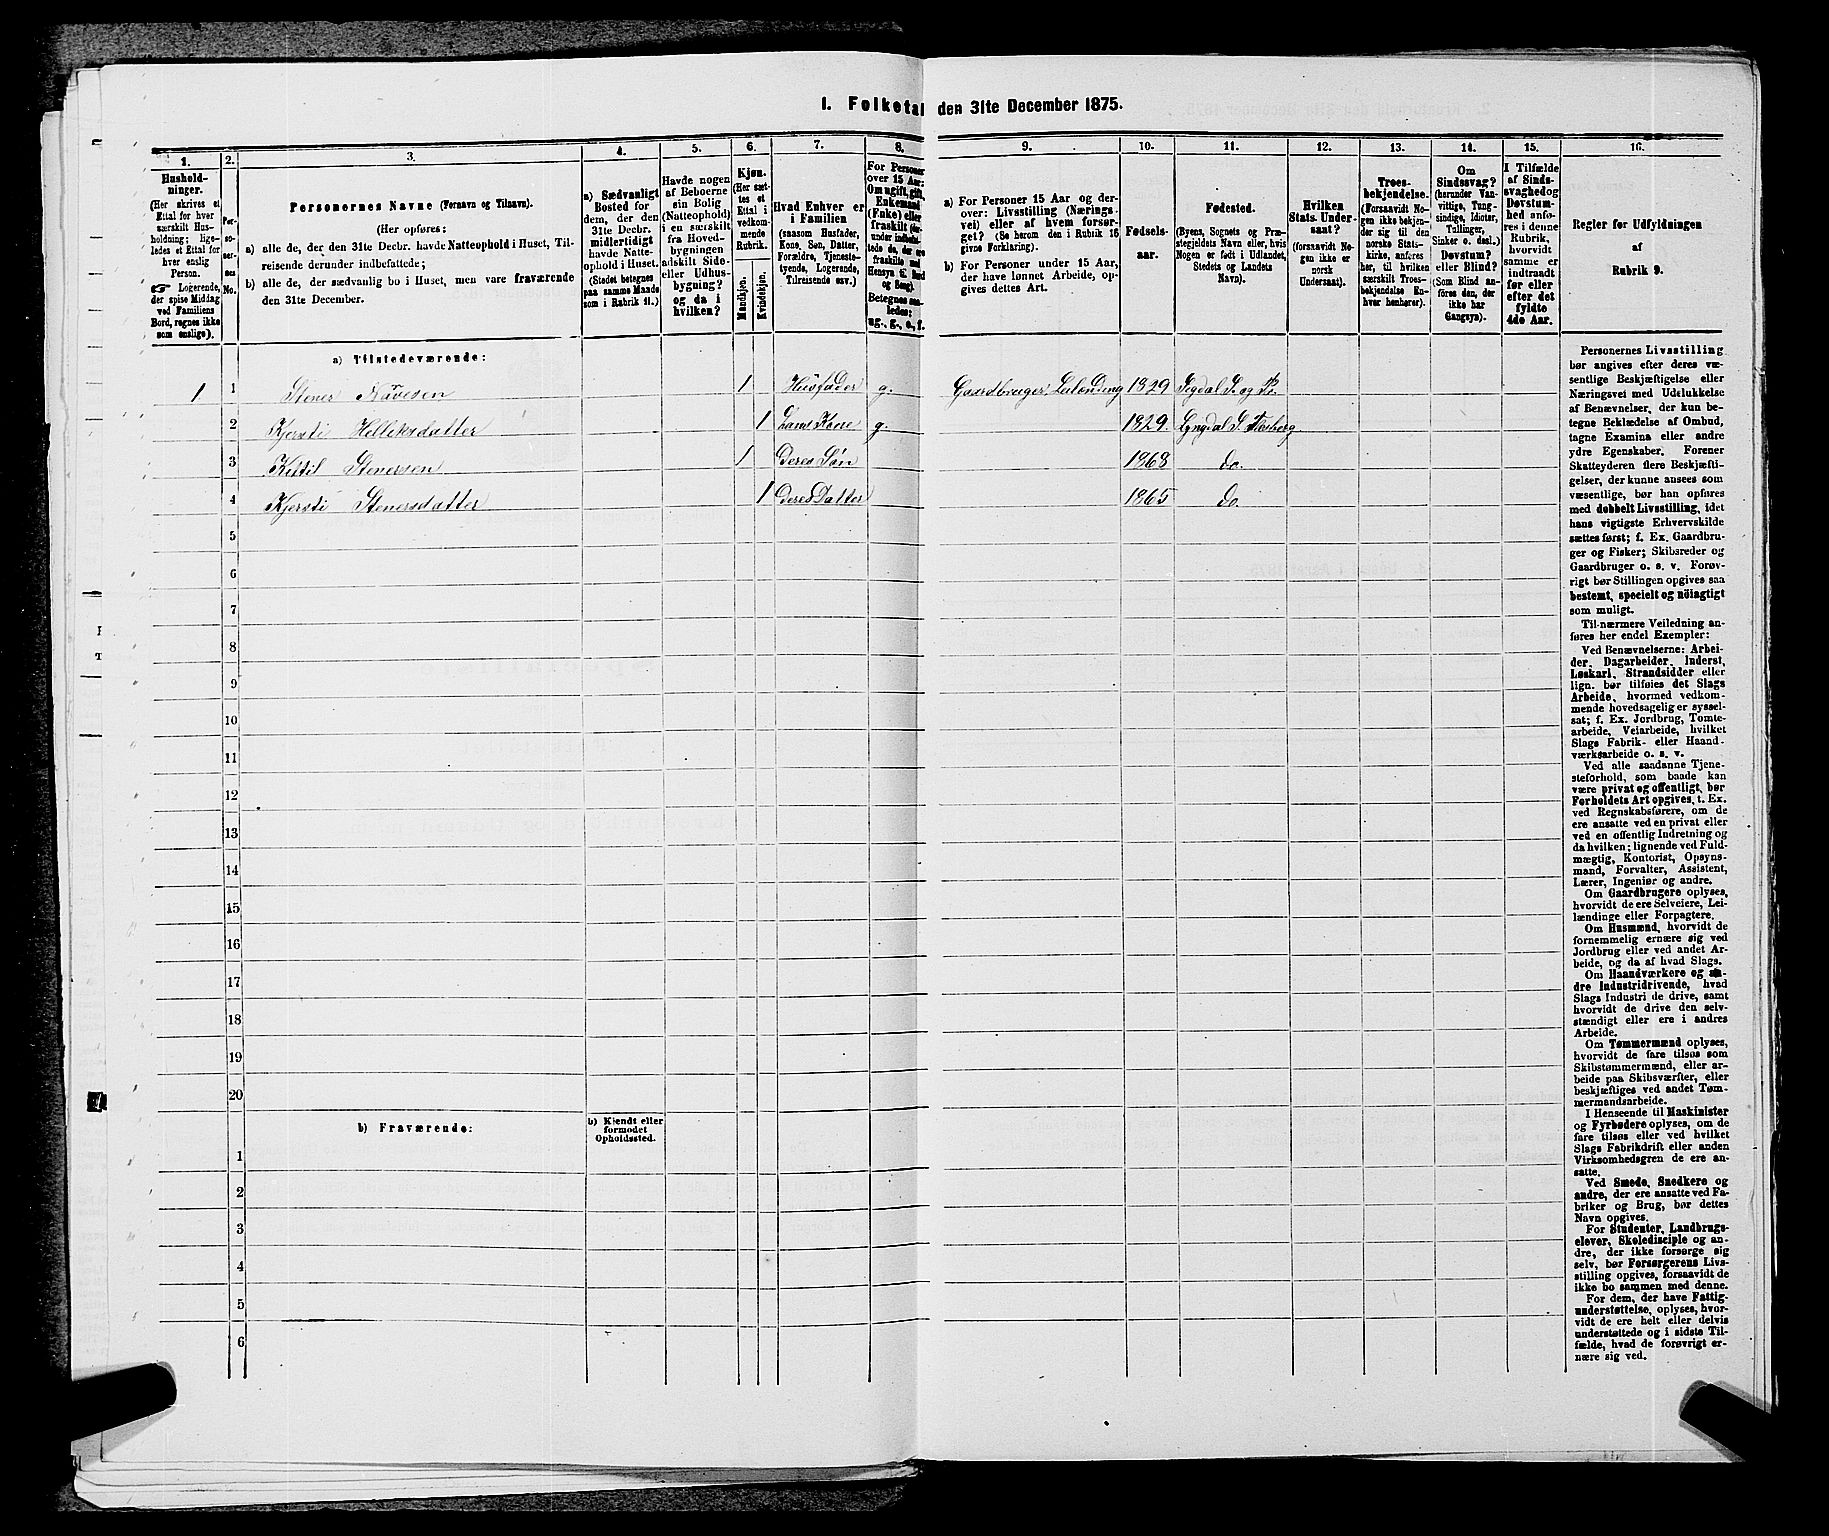 I. Folketal den 31te December 1875.
1.
2.
3.
4.
5.
6.
7.
8.
9.
10.
11.
12.
13.
14.
15.
16.
Husholdninger.
(Her skrives et
Ettal for hver
særskilt Hus-
holdning; lige-
ledes et Ettal for
hver enslig
Person.
☞ Logerende,
der spise Middag
ved Familiens
Bord, regnes ikke
som enslige).
Per-
so-
ner-
nes
No.
Personernes Navne (Fornavn og Tilnavn).
(Her opføres:
a) alle de, der den 31te Decbr. havde Natteophold i Huset, Til-
reisende derunder indbefattede;
b) alle de, der sædvanlig bo i Huset, men vare fraværende
den 31te December.
a) Sædvanligt
Bosted for
dem, der den
31te Decbr.
midlertidigt
havde Natte-
ophold i Huset.
(Stedet betegnes
paa samme Maade
som i Rubrik 11.)
Havde nogen
af Beboerne
sin Bolig
(Natteophold)
i en særskilt
fra Hoved-
bygningen
adskilt Side-
eller Udhus-
bygning?
og da i
hvilken?
Kjøn.
(Her sæt-
tes et
Ettal i
vedkom-
mende
Rubrik.
Mandkjøn.
Kvindekjøn.
Hvad Enhver er
i Familien
(saasom Husfader,
Kone, Søn, Datter,
Forældre, Tjeneste-
tyende, Logerende,
Tilreisende osv.)
For Personer
over 15 Aar:
Om ugift, gift,
Enkemand
(Enke) eller
fraskilt
Betegnes saa-
ledes:
ug., g., e., f.
a) For Personer 15 Aar og der-
over: Livsstilling (Nærings-
vei) eller af hvem forsør-
get? (Se herom den i Rubrik 16
givne Forklaring).
b) For Personer under 15 Aar,
der have lønnet Arbeide, op-
gives dettes Art.
Fødsels-
aar.
Fødested.
(Byens, Sognets og Præ-
stegjeldets Navn eller, hvis
Nogen er født i Udlandet,
Stedets og Landets
Navn).
Hvilken
Stats Under-
saat?
(forsaavidt No-
gen ikke er
norsk
Undersaat).
Troes-
bekjendelse.
(Forsaavidt No-
gen ikke bekjen-
der sig til den
norske Stats-
kirke, anføres
her, til hvilken
særskilt Troes-
bekjendelse En-
hver henhører).
Om
Sindssvag?
(herunder Van-
vittige, Tung-
sindige, Idioter,
Tullinger,
Sinker o. desl.)
Døvstum?
eller Blind?
(Som Blind an-
føres den, der
ikke har
Gangsyn).
I Tilfælde
af Sinds-
svaghed og
Døvstum-
hed anfø-
res i denne
Rubrik,
hvorvidt
samme er
indtraadt
før eller
efter det
fyldte
4de Aar.
Regler for Udfyldningen
af
Rubrik 9.
a) Tilstedeværende:
1 1 Stener Navesen 1 Husfader g. Gaardbruger, Leilænding 1829 Sigdal S. og Pr.
2 Kjersti Helliksdatter 1 hans Kone g. 1829. Lyngdal S. Flesberg
3 Kittil Stenersen 1 Deres Søn 1868 do.
4 Kjersti Stenersdatter 1 Deres Datter 1865 do.
5
6
7
8
9
10
11
12
13
14
15
16
17
18
19
20
b) Fraværende:
b) Kjendt eller
formodet
Opholdssted.
1
2
3
4
5
6
Personernes Livsstilling
bør angives efter deres væ-
sentlige Beskjæftigelse eller
Næringsvei med Udelukkelse
af Benævnelser, der kun be-
tegne Beklædelse af Ombud,
tagne Examina eller andre
ydre Egenskaber. Forener
Skatteyderen flere Beskjæfti-
gelser, der kunne ansees som
væsentlige, bør han opføres
med dobbelt Livsstilling, idet
hans vigtigste Erhvervskilde
sættes først; f. Ex. Gaardbru-
ger og Fisker; Skibsreder og
Gaardbruger o. s. v. Forøv-
rigt bør Stillingen opgives saa
bestemt, specielt og nöiagtigt
som muligt.
Til nærmere Veiledning an-
føres her endel Exempler:
Ved Benævnelserne: Arbei-
der, Dagarbeider, Inderst,
Løskarl, Strandsidder eller
lign. bør tilføies det Slags
Arbeide, hvormed vedkom-
mende hovedsagelig er syssel-
sat; f. Ex. Jordbrug, Tomte-
arbeide, Veiarbeide, hvilket
Slags Fabrik- eller Haand-
værksarbeide o. s. v.
Ved alle saadanne Tjene-
steforhold, som baade kan
være privat og offentligt, bør
Forholdets Art opgives, t. Ex.
ved Regnskabsførere, om de
ere ansatte ved en privat eller
ved en offentlig Indretning og
da hvilken; lignende ved Fuld-
mægtig, Kontorist, Opsyns-
mand, Forvalter, Assistent,
Lærer, Ingeniør og andre.
Om Gaardbrugere oplyses,
hvorvidt de ere Selveiere, Lei-
lændinge eller Forpagtere.
Om Husmænd, hvorvidt de
fornemmelig ernære sig ved
Jordbrug eller ved andet Ar-
beide, og da af hvad Slags.
Om Haandværkere og an-
dre Industridrivende, hvad
Slags Industri de drive, samt
hvorvidt de drive den selv-
stændigt eller ere i andres
Arbeide.
Om Tømmermænd oplyses,
hvorvidt de fare tilsøs som
Skibstømmermænd, eller ar-
beide paa Skibsværfter, eller
beskjæftiges ved andet Tøm-
mermandsarbeide.
I Henseende til Maskinister
og Fyrbødere oplyses, om de
fare tilsøs eller ved hvilket
Slags Fabrikdrift eller anden
Virksomhedsgren de ere an-
satte.
Ved Smede, Snedkere og
andre, der ere ansatte ved Fa-
briker og Brug, bør dettes
Navn opgives.
For Studenter, Landbrugs-
elever, Skoledisciple og an-
dre, der ikke forsørge sig
selv, bør Forsørgerens Livs-
stilling opgives, forsaavidt de
ikke bo sammen med denne.
For dem, der have Fattig-
understøttelse, oplyses, hvor-
vidt de ere helt eller delvis
understøttede og i sidste Til-
fælde, hvad de forøvrigt er-
nære sig ved.